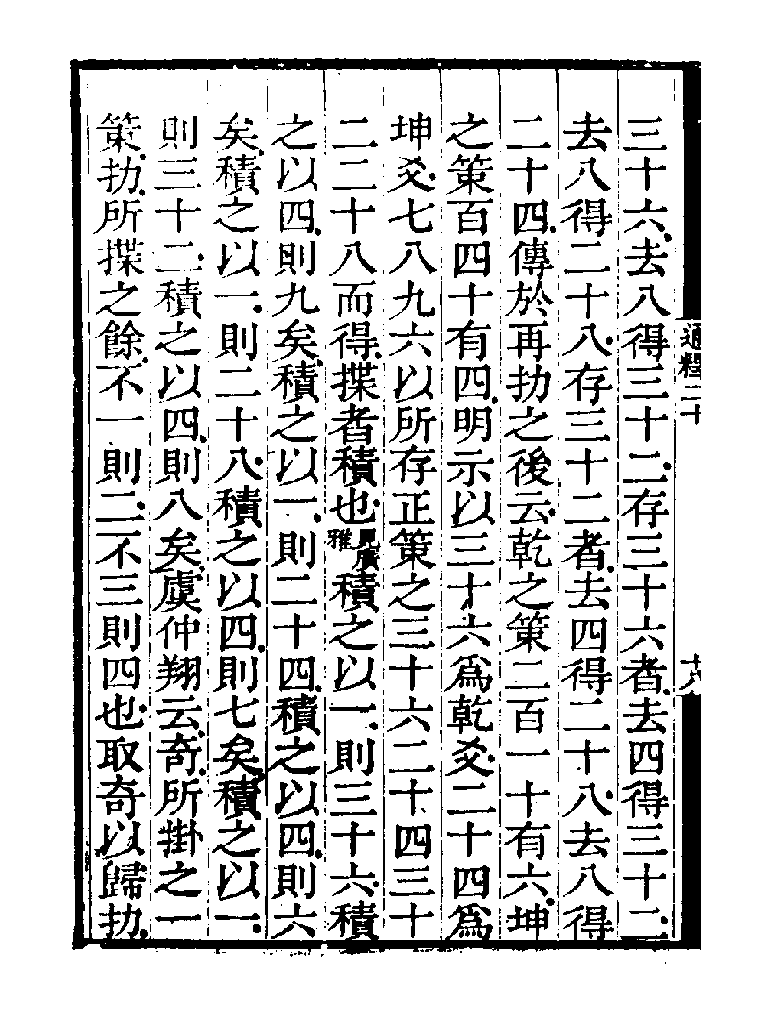 三十六去八得三十二存三十六者去四得三十二
去八得二十八存三十二者去四得二十八去八得
二十四傳於再扐之後云乾之策二百一十有六坤
之策百四十有四明示以三十六爲乾爻二十四爲
坤爻七八九六以所存正策之三十六二十四三十
二二十八而得揲者積也見廣雅積之以一則三十六積
之以四則九矣積之以一則二十四積之以四則六
矣積之以一則二十八積之以四則七矣積之以一
則三十二積之以四則八矣虞仲翔云奇所掛之一
策扐所揲之餘不一則二不三則四也取奇以歸扐
通釋二十
十八